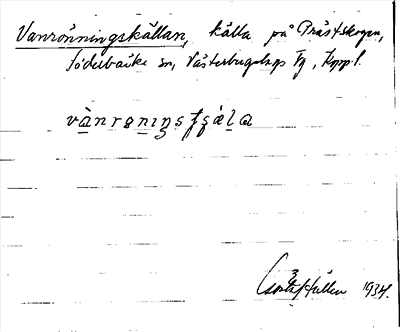 Vanrönningskällan, källa på Prästskogen,
Söderbärke sn, Västerbergslags Fg, Kppl.
vànrønıŋsʃɕälа
1934.